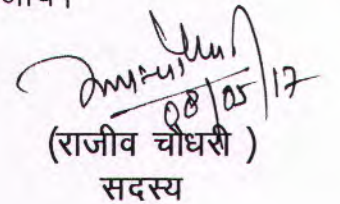 08/05/17
(राजीव चौधरी )
सदस्य